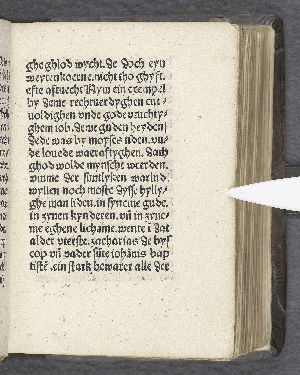 gheghlod wycht. de doch eyn
weytenkoerne. nicht tho ghyft.
efte aftuecht Nym ein exempel
by deme rechtuerdyghen eut
uoldighen unde gode uruchty-
ghem iob. deme guden heyden
dede was by moyses tiden. uu-
de louede waeraftyghen. dath
ghod wolde mynsche werden.
umme der sunth wor und
wyllen noch moste dysse hylly-
ghe man liden. in syneme gude.
in zynen kynderen. uñ in zyne-
me eghene lichame. wente i dat
alder uterste. zacharias de bys
cop uñ uader süte iohānis bap
tistē. ein stark bewarer alle der